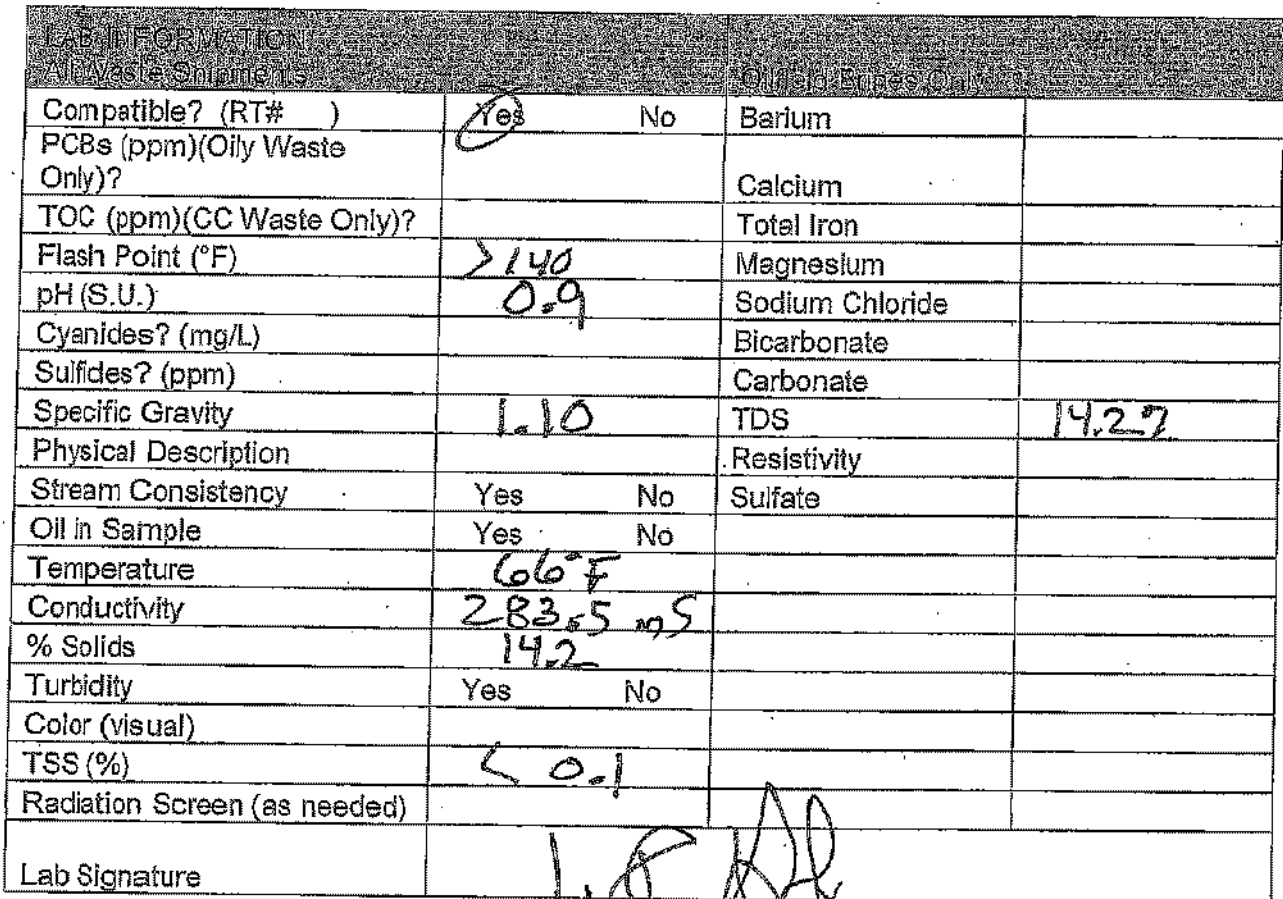 LAB INFORMATION
All Waste Shipments
Oilfield Brines Only
Compatible? (RT# ) Yes No Barium
PCBs (ppm)(Oily Waste
Only)? Calcium
TOC (ppm)(CC Waste Only)? Total Iron
Flash Point (°F) >140 Magnesium
pH (S.U.) 0.9 Sodium Chloride
Cyanides? (mg/L) Bicarbonate
Sulfides? (ppm) Carbonate
Specific Gravity 1.10 TDS
Physical Description Resistivity
Stream Consistency Yes No Sulfate
Oil in Sample Yes No
Temperature 66°F
Conductivity 283.5 mS
% Solids 14.2
Turbidity Yes No
Color (visual)
TSS (%) < 0.1
Radiation Screen (as needed)
Lab Signature